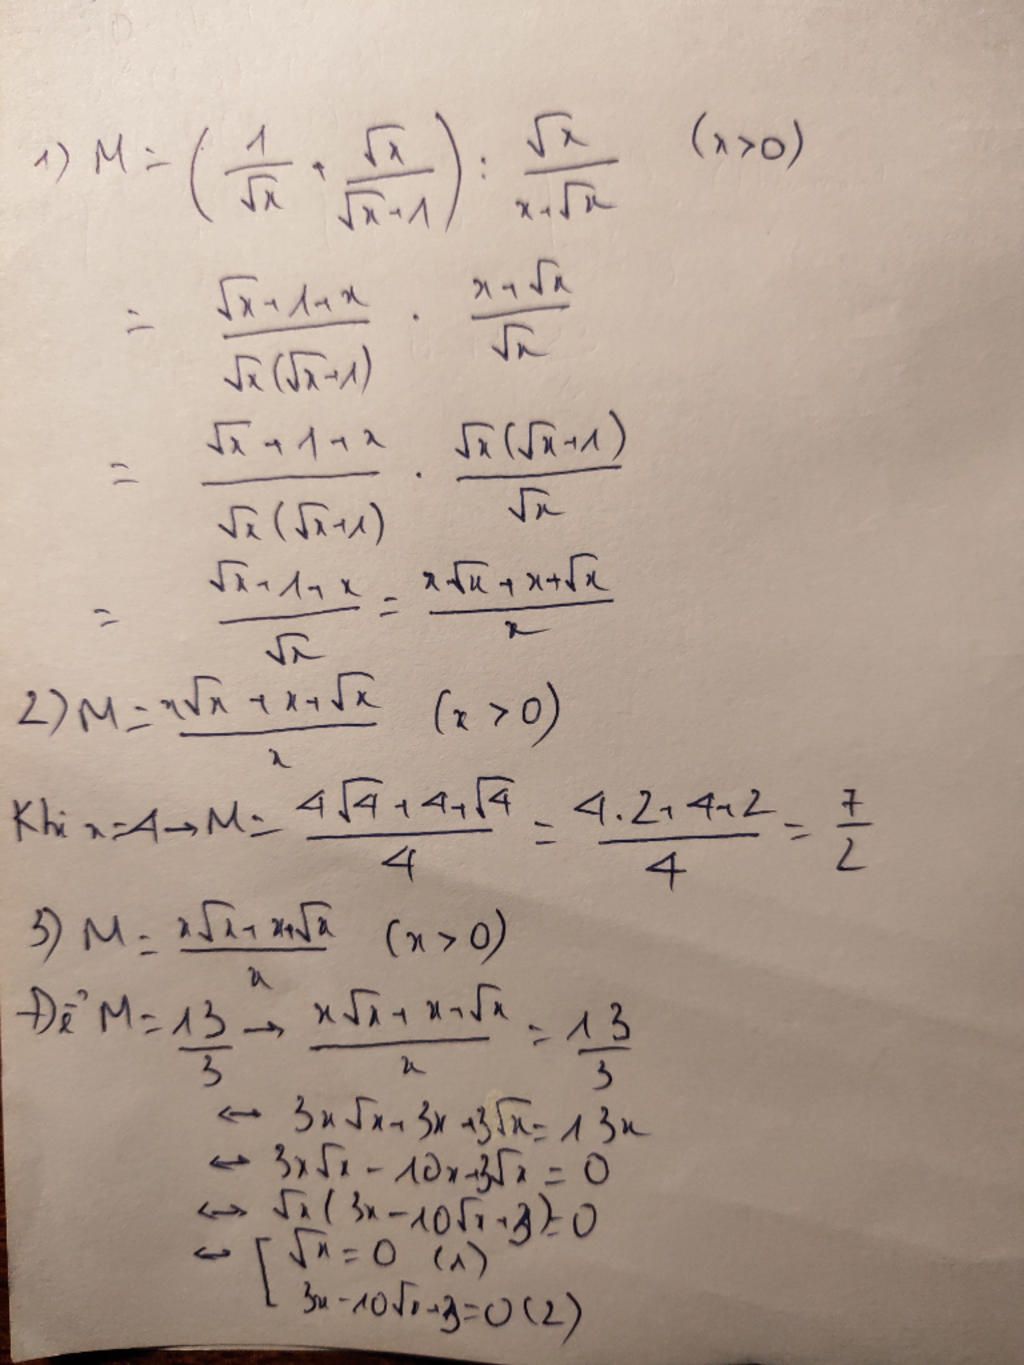 1) M = (1/√x + √x/(√x+1)) : √x/(x+√x) (x>0)
= (√x+1+x)/(√x(√x+1)) . (x+√x)/√x
= (√x+1+x)/(√x(√x+1)) . √x(√x+1)/√x
= (√x+1+x)/√x = (x√x+x+√x)/x
2) M = (x√x+x+√x)/x (x>0)
Khi x=4→M= (4√4+4+√4)/4 = (4.2+4+2)/4 = 7/2
3) M = (x√x+x+√x)/x (x>0)
Để M=13/3 → (x√x+x+√x)/x = 13/3
↔ 3x√x+3x+3√x=13x
↔ 3x√x-10x+3√x=0
↔ √x(3x-10√x+3)=0
↔ [ √x=0 (1)
3x-10√x+3=0 (2)